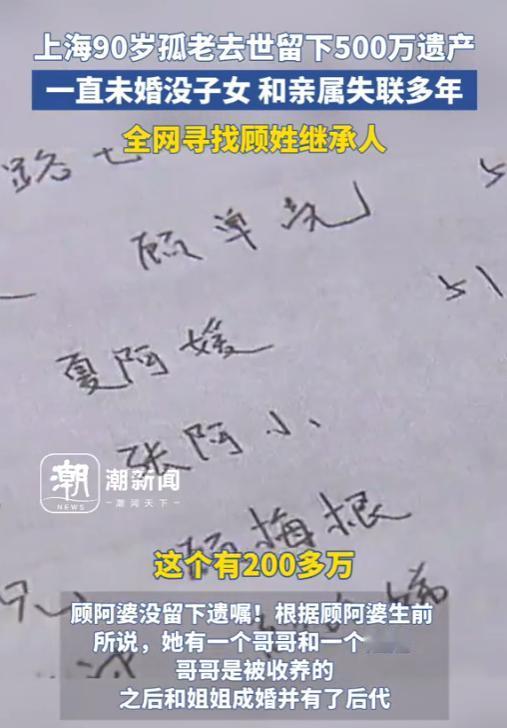 上海90岁孤老去世留下500万遗产
一直未婚没子女 和亲属失联多年
全网寻找顾姓继承人
路七
51
夏阿媛
张阿小
潮 潮新闻
NEWS 潮闻天下
顾梅根
这个有200多万
顾阿婆没留下遗嘱！根据顾阿婆生前
所说，她有一个哥哥和一个
哥哥是被收养的
之后和姐姐成婚并有了后代